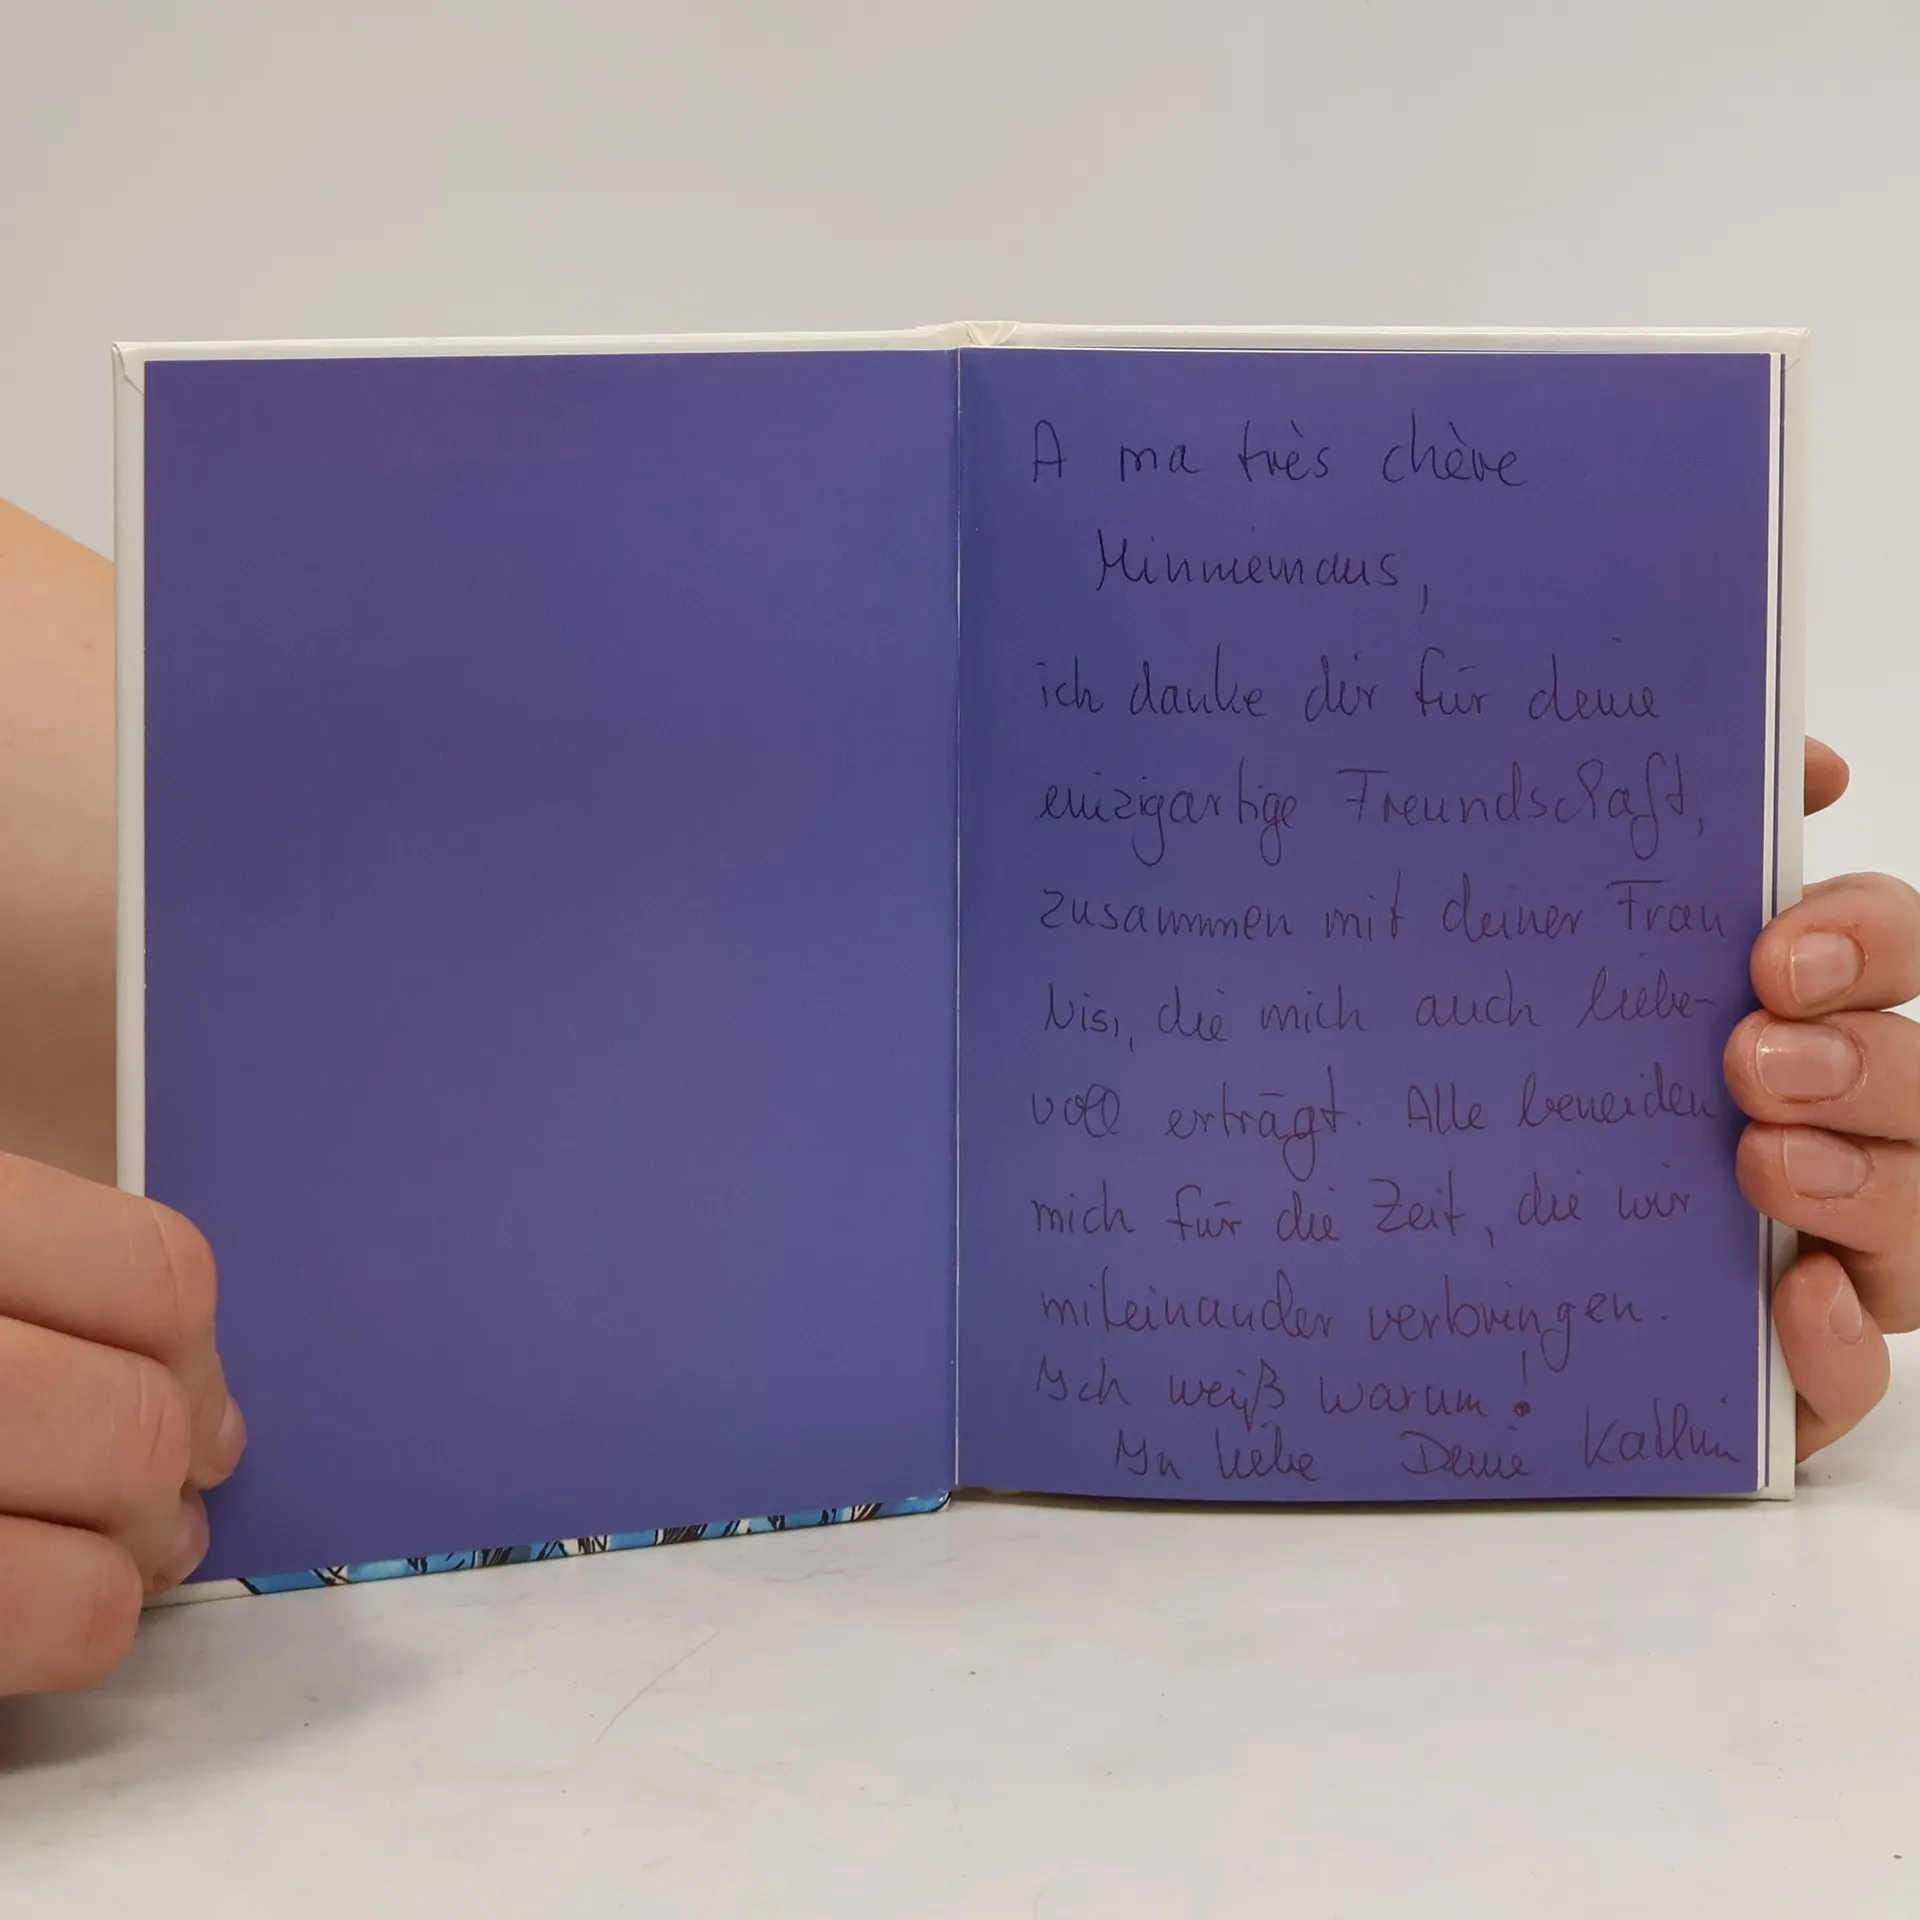 A ma très chère
Minniemaus,
ich danke dir für deine
einzigartige Freundschaft,
zusammen mit deiner Frau
Nisi, die mich auch liebe-
voll erträgt. Alle beneiden
mich für die Zeit, die wir
miteinander verbringen.
Ich weiß warum!
In Liebe Deine Kathrin